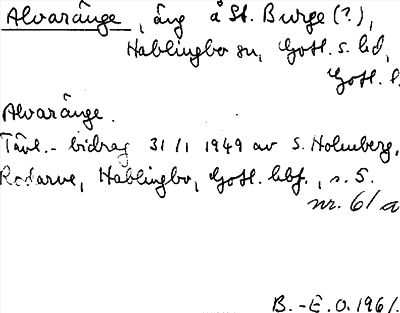 Alvaränge, äng å St. Burge (?),
Hablingbo sn, Gotl. s. hd,
Gotl. l.
Alvaränge.
Tävl.-bidrag 31/1 1949 av S. Holmberg,
Rodarve, Hablingbo, Gotl. hbf., s. 5.
nr. 61 a
B.-E.O. 1961.